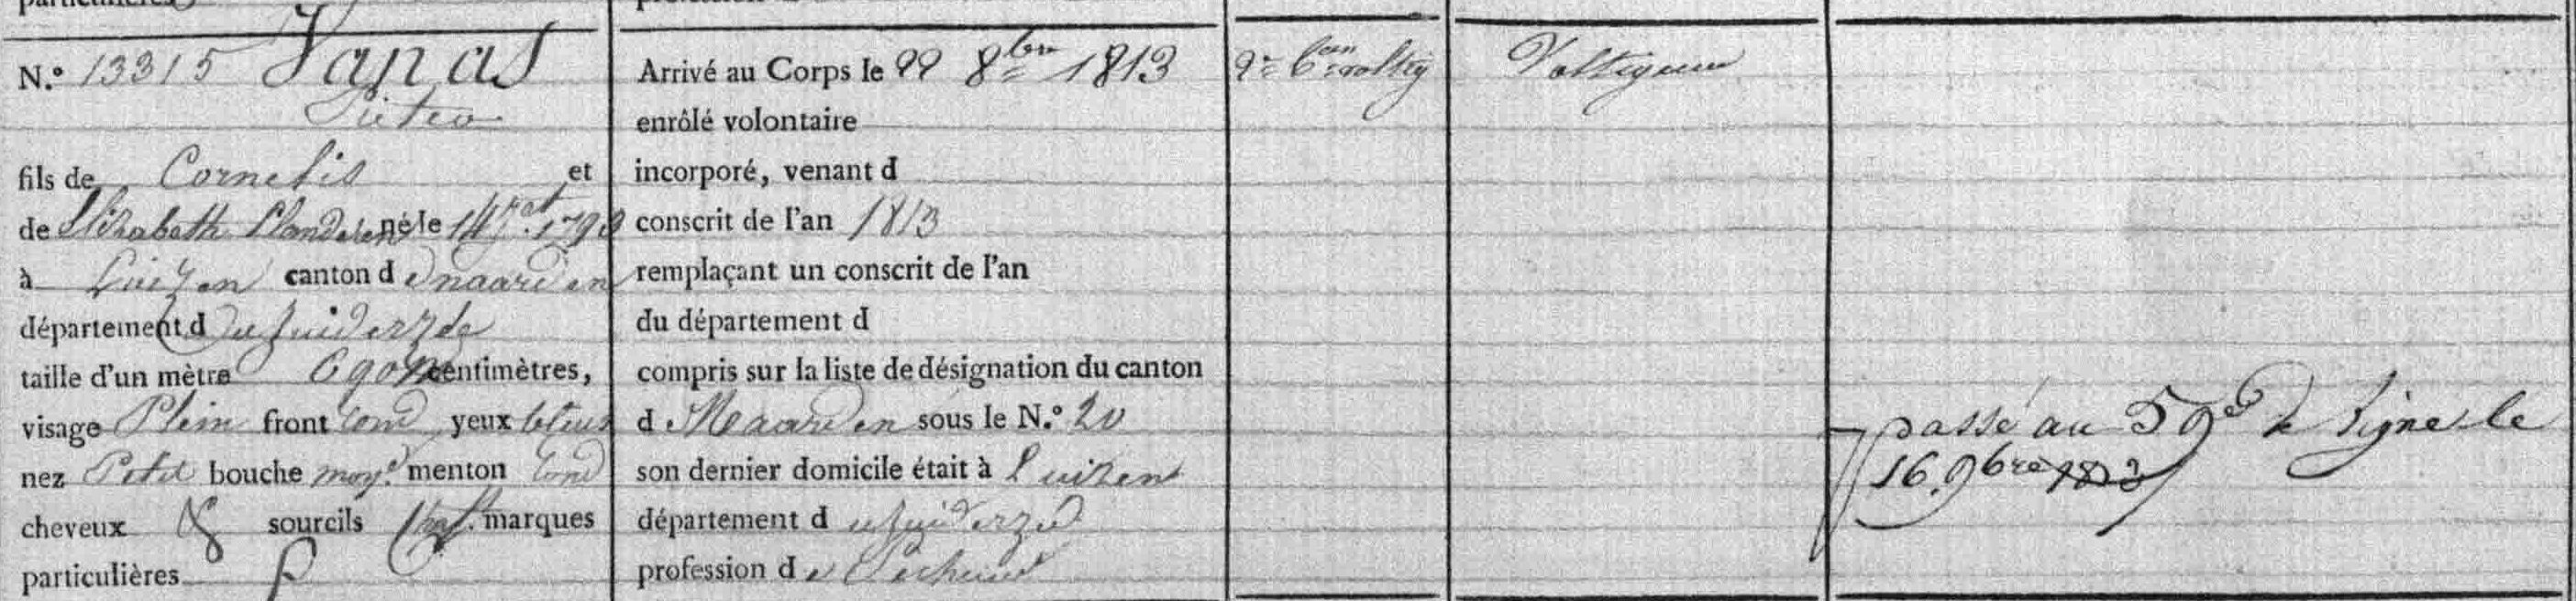 N.° 13315 Vanas
Pieter
fils de Cornelis et
de Elisabeth Vlanderen né le 14 7bre 1793
à Luizen canton de naarden
département du Zuiderzée
taille d'un mètre 690 m centimètres,
visage Plein front rond yeux bleus
nez Petit bouche moy.e menton rond
cheveux & sourcils chat. marques
particulières
Arrivé au Corps le 22 8bre 1813
enrôlé volontaire
incorporé, venant d
conscrit de l'an 1813
remplaçant un conscrit de l'an
du département d
compris sur la liste de désignation du canton
de Naarden sous le N.° 20
son dernier domicile était à Luizen
département du Zuiderzée
profession de Pecheur
2e Cie voltig
Voltigeur
passé au 59e de ligne le
16. 9bre 1813